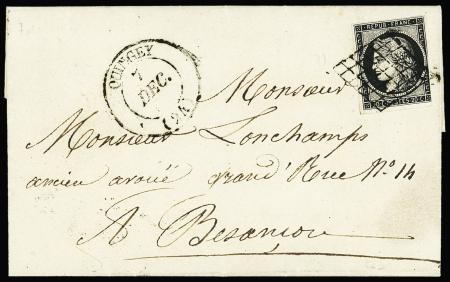 REPUB. FRANC.
QUINGEY
7
DEC.
(24)
20 C 20 C
Monsieur
Monsieur Lonchamps
ancien avoué grand'Rue N.o 14
A Besançon